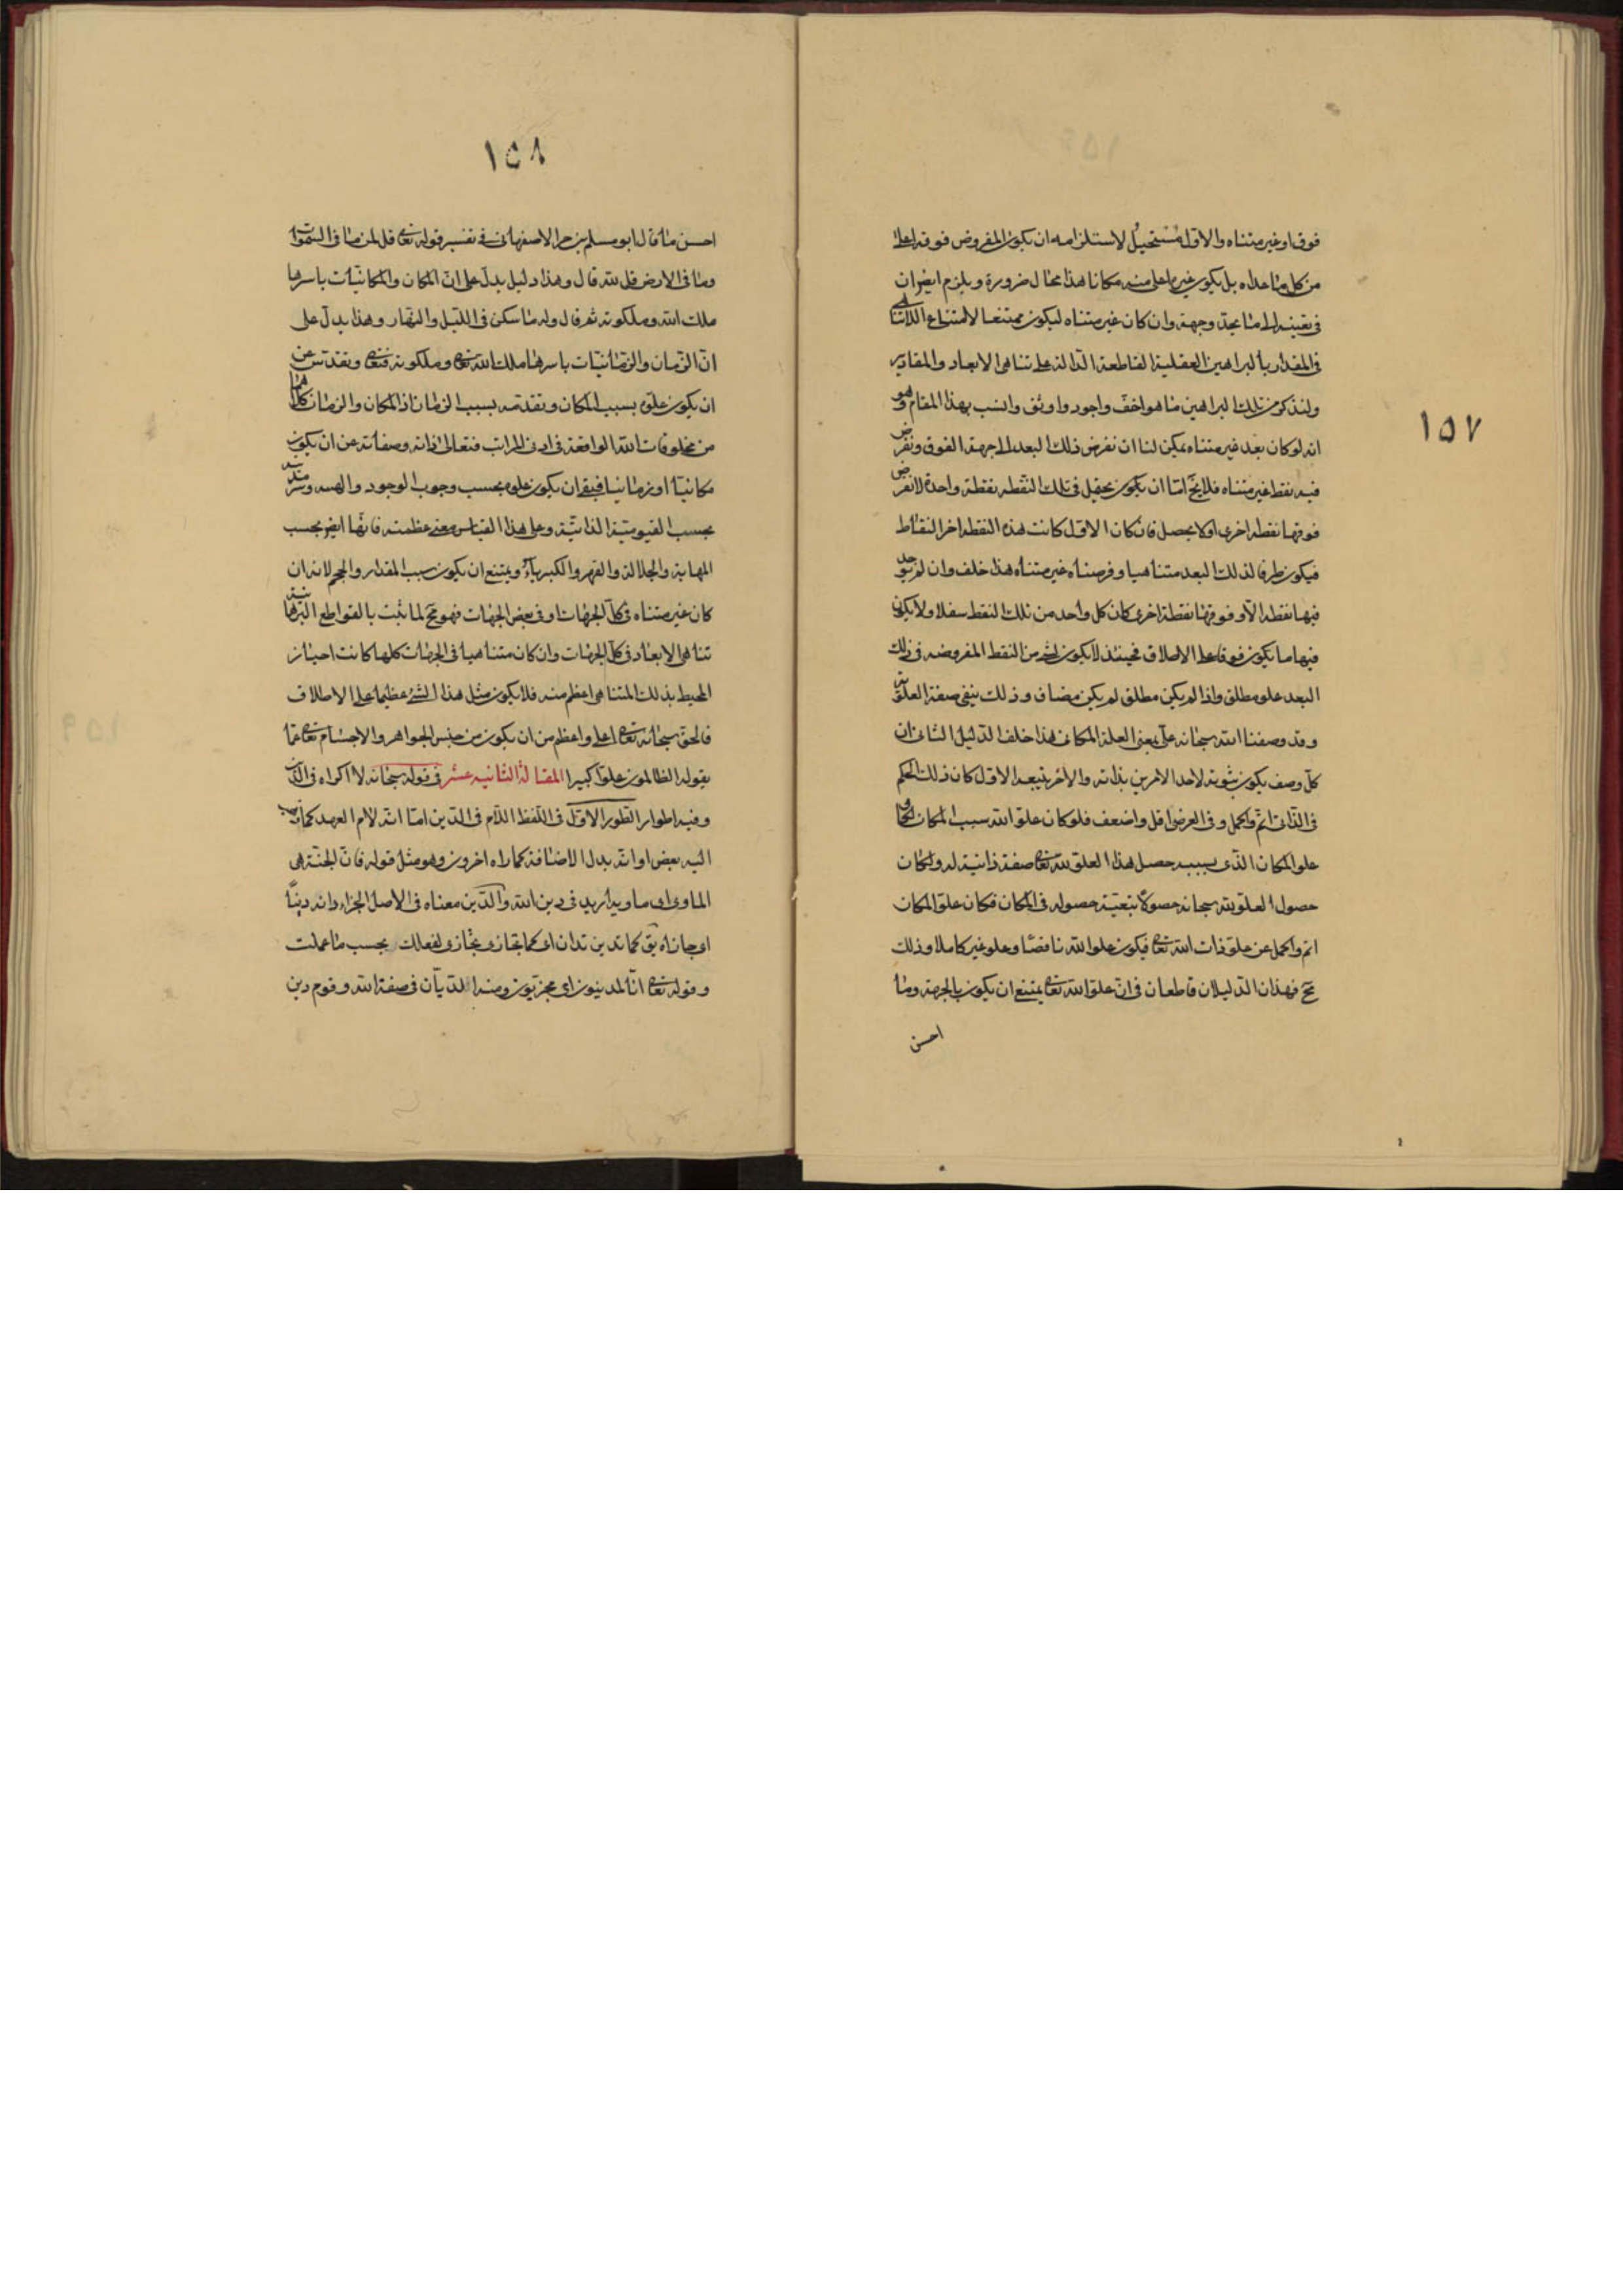 ١٥٧
فوق او غير متناه والاول مستحيل لاستلزامه ان يكون المفروض فوقه اعلى
من كل ما عداه بل يكون غيره اعلى منه مكانا هذا محال ضرورة ويلزم ايضا ان
فى تعينه الى ما يحد وجهة وان كان غير متناه ليكون ممتنعا لامتناع اللاتناهى
فى المقدار بالبراهين العقلية القاطعة الدالة على تناهى الابعاد والمقادير
ولنذكر من تلك البراهين ما هو اخف واجود واوثق وانسب بهذا المقام وهو
انه لو كان بعد غير متناه يمكن لنا ان نفرض ذلك البعد الى جهة الفوق ونفرض
فيه نقط غير متناه فلا يخ اما ان يكون يحصل فى تلك النقطه نقطة واحدة لا نفرض
فوقها نقطه اخرى او لا يحصل فان كان الاول كانت هذه النقطه اخر النقاط
فيكون طرفا لذلك البعد متناهيا وفرضناه غير متناه هذا خلف وان لم يوجد
فيها نقطه الا وفوقها نقطة اخرى كان كل واحد من تلك النقط سفلا ولا يكون
فيها ما يكون فوقا على الاطلاق فحينئذ لا يكون لشئ من النقط المفروضه فى ذلك
البعد علو مطلق واذا لم يكن مطلق لم يكن مضاف وذلك ينفى صفة العلوية
وقد وصفنا الله سبحانه على بمعنى العلة المكانى هذا خلف الدليل الثانى ان
كل وصف يكون ثبوته لاحد الامرين بذاته والاخر بتبعه الاول كان ذلك الحكم
فى الذاتى اتم واكمل وفى العرضى اقل واضعف فلو كان علو الله سبب المكان لكان
علو المكان الذى بسببه حصل هذا العلو لله تعالى صفة ذاتية له ولكان
حصول العلو لله سبحانه حصولا بتبعية حصوله فى المكان فكان علو المكان
اتم واكمل عن علو ذات الله تعالى فيكون علو الله ناقصا وعلو غير كاملا وذلك
مح فهذان الدليلان قاطعان فى ان علو الله تعالى يمتنع ان يكون بالجهة وما
احسن
١٥٨
احسن ما قال ابو مسلم بن حر الاصفهانى فى تفسير قوله تعالى قل لمن ما فى السموات
وما فى الارض قل لله قال وهذا دليل يدل على ان المكان والمكانيات باسرها
ملك الله وملكوته ثم قال وله ما سكن فى الليل والنهار وهذا يدل على
ان الزمان والزمانيات باسرها ملك الله تعالى وملكوته فتعالى وتقدس عن
ان يكون علوه بسبب المكان وتقدمه بسبب الزمان اذ المكان والزمان كلاهما
من مخلوقات الله الواقعة فى ادنى المراتب فتعالى ذاته وصفاته عن ان يكون
مكانيا او زمانيا فبقى ان يكون علوه بحسب وجوب الوجود والهيه وسرمديه
بحسب القيومية الذاتية وعلى هذا القياس معنى عظمته فانها ايض بحسب
المهابة والجلالة والقهر والكبرياء ويمتنع ان يكون سبب المقدار والحجم لانه ان
كان غير متناه فى كل الجهات او فى بعض الجهات فهو مح لما ثبت بالقواطع البرهانية
تناهى الابعاد فى كل الجهات وان كان متناهيا فى الجهات كلها كانت احياز
المحيط بذلك المتناهى اعظم منه فلا يكون مثل هذا الشئ عظيما على الاطلاق
فالحق سبحانه تعالى اعلى واعظم من ان يكون من جنس الجواهر والاجسام تعالى عما
يقوله الظالمون علوا كبيرا المقالة الثانيه عشر فى قوله سبحانه لا اكراه فى الدين
وفيه اطوار الطور الاول فى اللفظ اللام فى الدين اما انه لام العهد كما ذهب
اليه بعض او انه بدل الاضافة كما راه اخرون وهو مثل قوله فان الجنة هى
الماوى اى ماويه اريد فى دين الله والدين معناه فى الاصل الجزاء دانه دينا
اى جازاه يق كما تدين تدان اى كما تجازى تجازى لفعلك بحسب ما عملت
وقوله تعالى انا لمدينون اى مجزيون ومنه الديان فى صفة الله وقوم دين